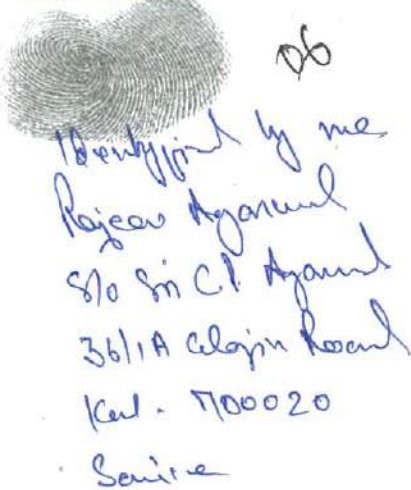 06
Identified by me
Rajeev Agarwal
S/o Sri C.P. Agarwal
36/1A Elgin Road
Kol. - 700020
Service